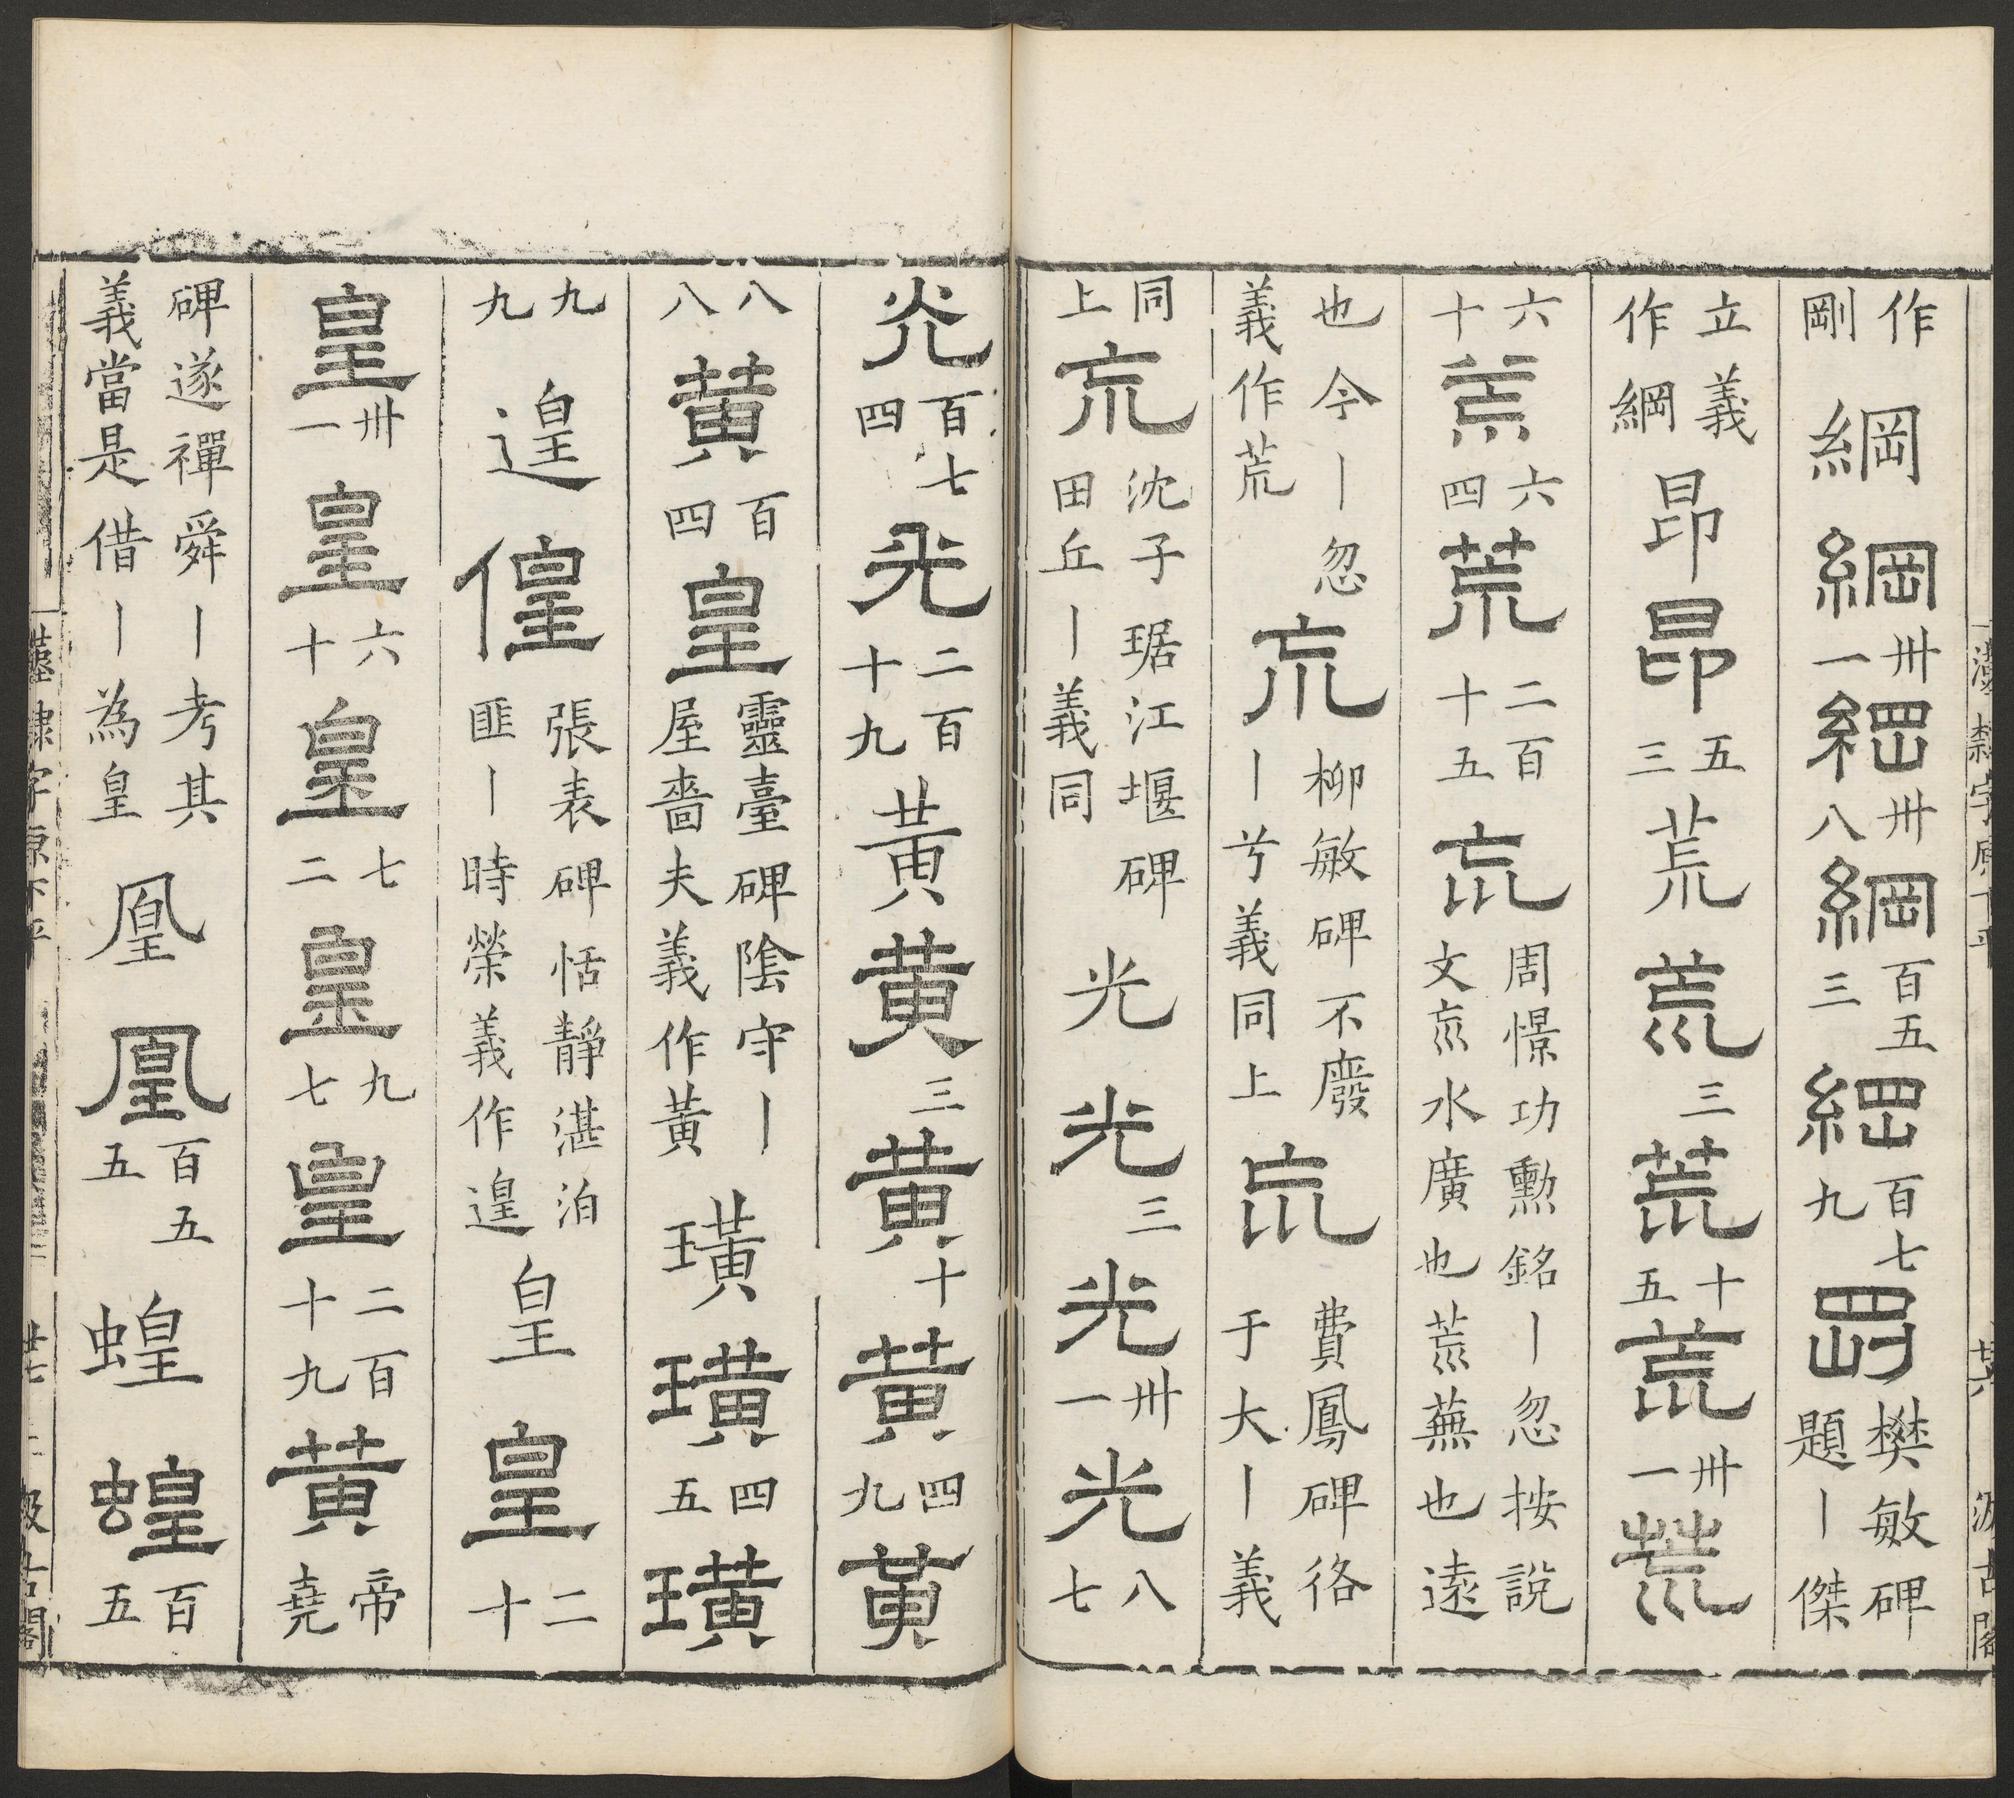 漢隸字原下平 廿六 汲古閣
作剛 綱 綱卅一綱卅八綱百五三綱百七九剛樊敏碑題丨傑
立義作綱 昂 昂五三 荒 荒三荒十五荒卅一荒
六十荒六四荒二百十五巟周憬功勳銘丨忽按說文巟水廣也荒蕪也遠
也今丨忽義作荒 巟柳敏碑不廢丨兮義同上巟費鳳碑佫于大丨義
同上巟沈子琚江堰碑田丘丨義同 光 光三光卅一光八七
炗百七四光二百十九 黃 黃三黃十黃四九黃
八八黃百四皇靈臺碑陰守丨屋嗇夫義作黃 璜 璜四五璜
九九 遑 偟張表碑恬靜湛泊匪丨時榮義作遑 皇 皇二十
皇卅一皇六十皇七二皇九七皇二百十九黃帝堯
碑遂禪舜丨考其義當是借丨為皇 凰 凰百五五 蝗 蝗百五
漢隸字原下平 廿七 汲古閣